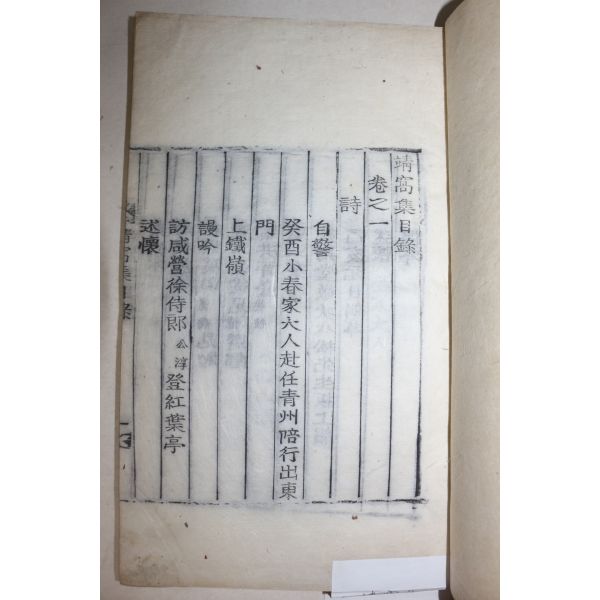 靖窩集目錄
卷之一
詩
自警
癸酉小春家大人赴任青州陪行出東
門
上鐵嶺
謾吟
訪咸營徐侍郞 公淳 登紅葉亭
述懷
靖窩集目錄